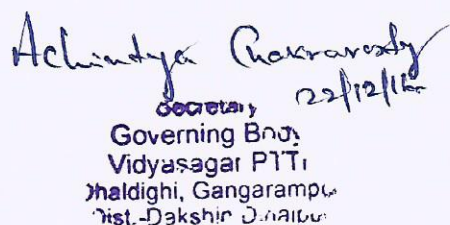 Achintya Chakravarty
22/12/16
Secretary
Governing Body
Vidyasagar PTTI
Dhaldighi, Gangarampur
Dist.-Dakshin Dinajpur